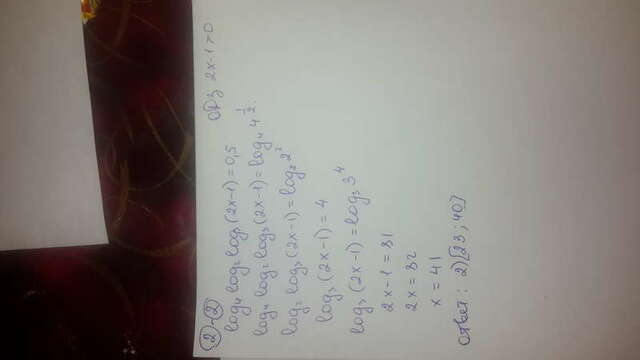 2-2 ОДЗ 2x-1>0
log₄ log₂ log₃ (2x-1) = 0,5
log₄ log₂ log₃ (2x-1) = log₄ 4^½.
log₂ log₃ (2x-1) = log₂ 2²
log₃ (2x-1) = 4
log₃ (2x-1) = log₃ 3⁴
2x-1 = 81
2x = 82
x = 41
Ответ: 2) [23; 40]